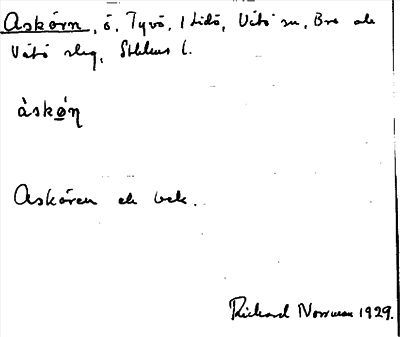 Askörn, ö, Tyvö, i Lidö, Vätö sn, Bro och
Vätö slg, Sthlms l.
àskø̀ɳ
Askören ek. bek.
Rickard Norrman 1929.